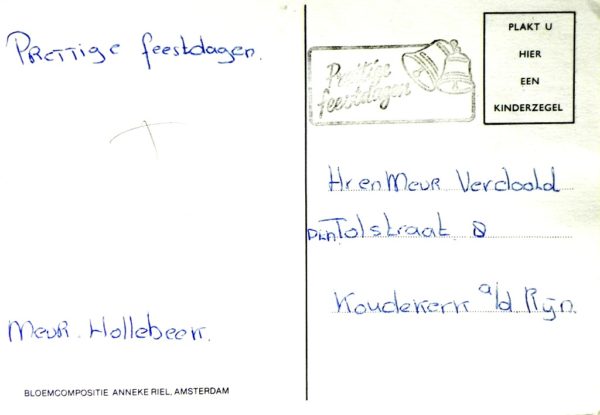 Prettige feestdagen.
Meur. Hollebeek.
BLOEMCOMPOSITIE ANNEKE RIEL, AMSTERDAM
Prettige
feestdagen
PLAKT U
HIER
EEN
KINDERZEGEL
Hr en Meur Verdoold
Tolstraat 8
Koudekerk a/d Rijn.